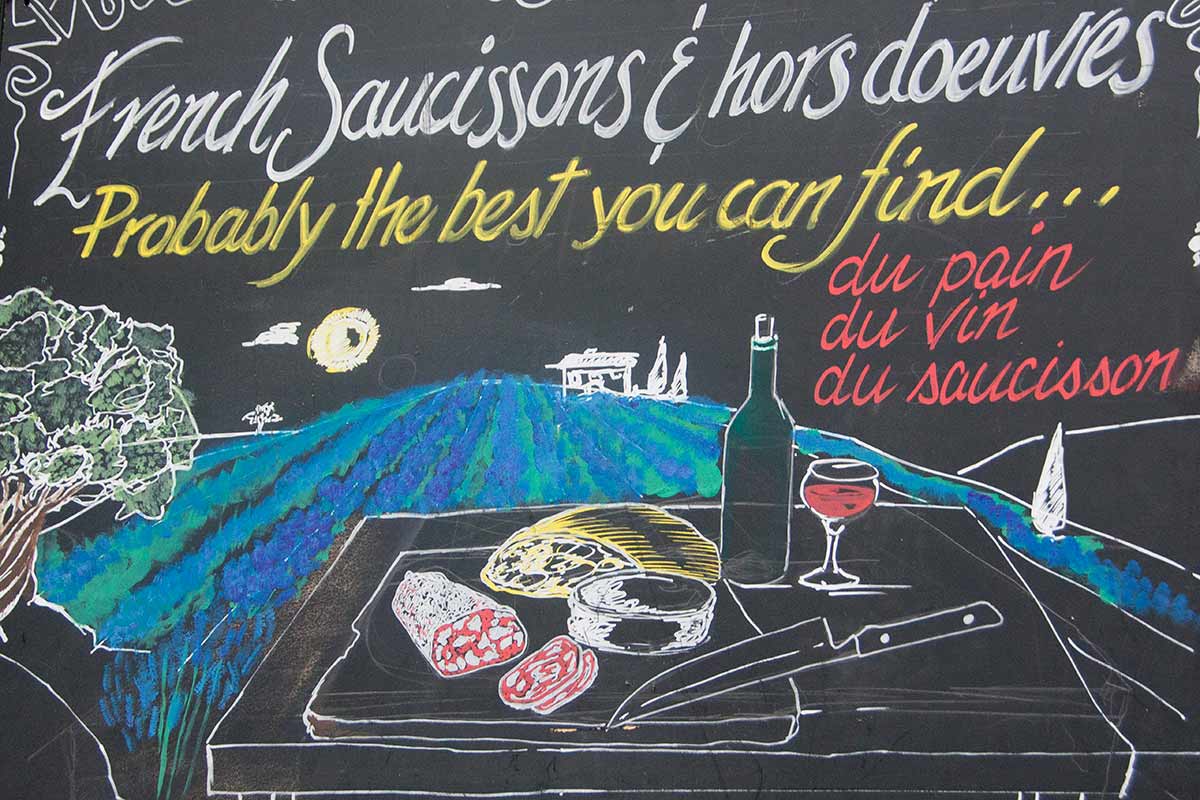 French Saucissons & hors doeuvres
Probably the best you can find...
du pain
du vin
du saucisson